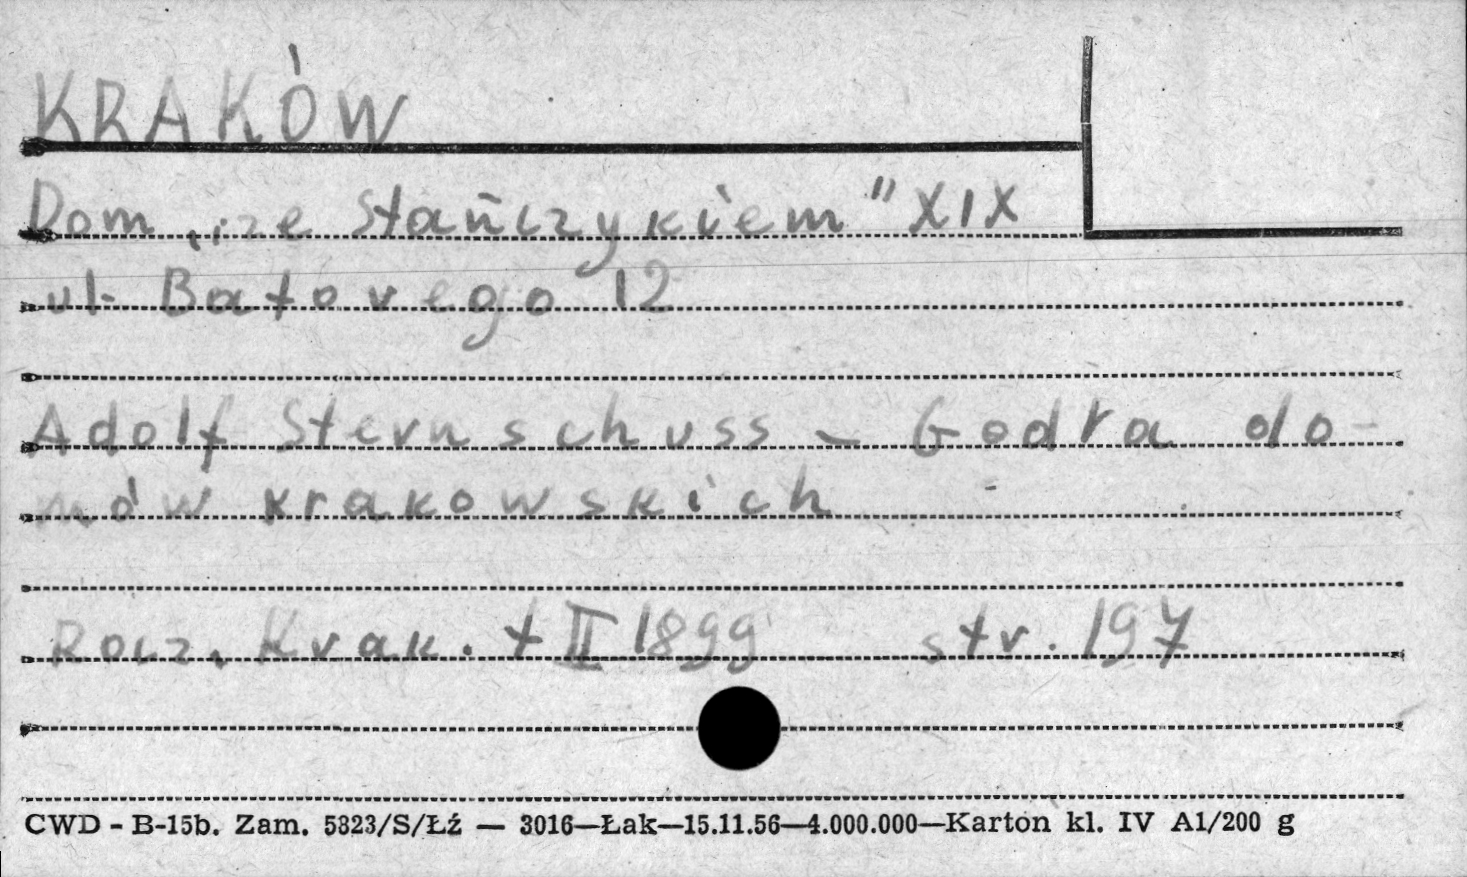 KRAKÓW
Dom „ze Stańczykiem" XIX
ul. Batorego 12
Adolf Sternschuss - Godła do-
mów krakowskich
Rocz. Krak. t II 1899 str. 197
CWD - B-15b. Zam. 5323/S/Łź — 3016—Łak—15.11.56—4.000.000—Karton kl. IV A1/200 g